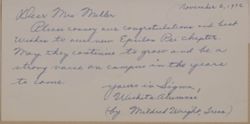 November 6, 1972
Dear Mrs Miller
Please convey our congratulations and best
wishes to our new Epsilon Rei chapter.
May they continue to grow and be a
strong voice on campus in the years
to come.
yours in Sigma,
Wichita Alumnae
(by Mildred Wright, Treas)